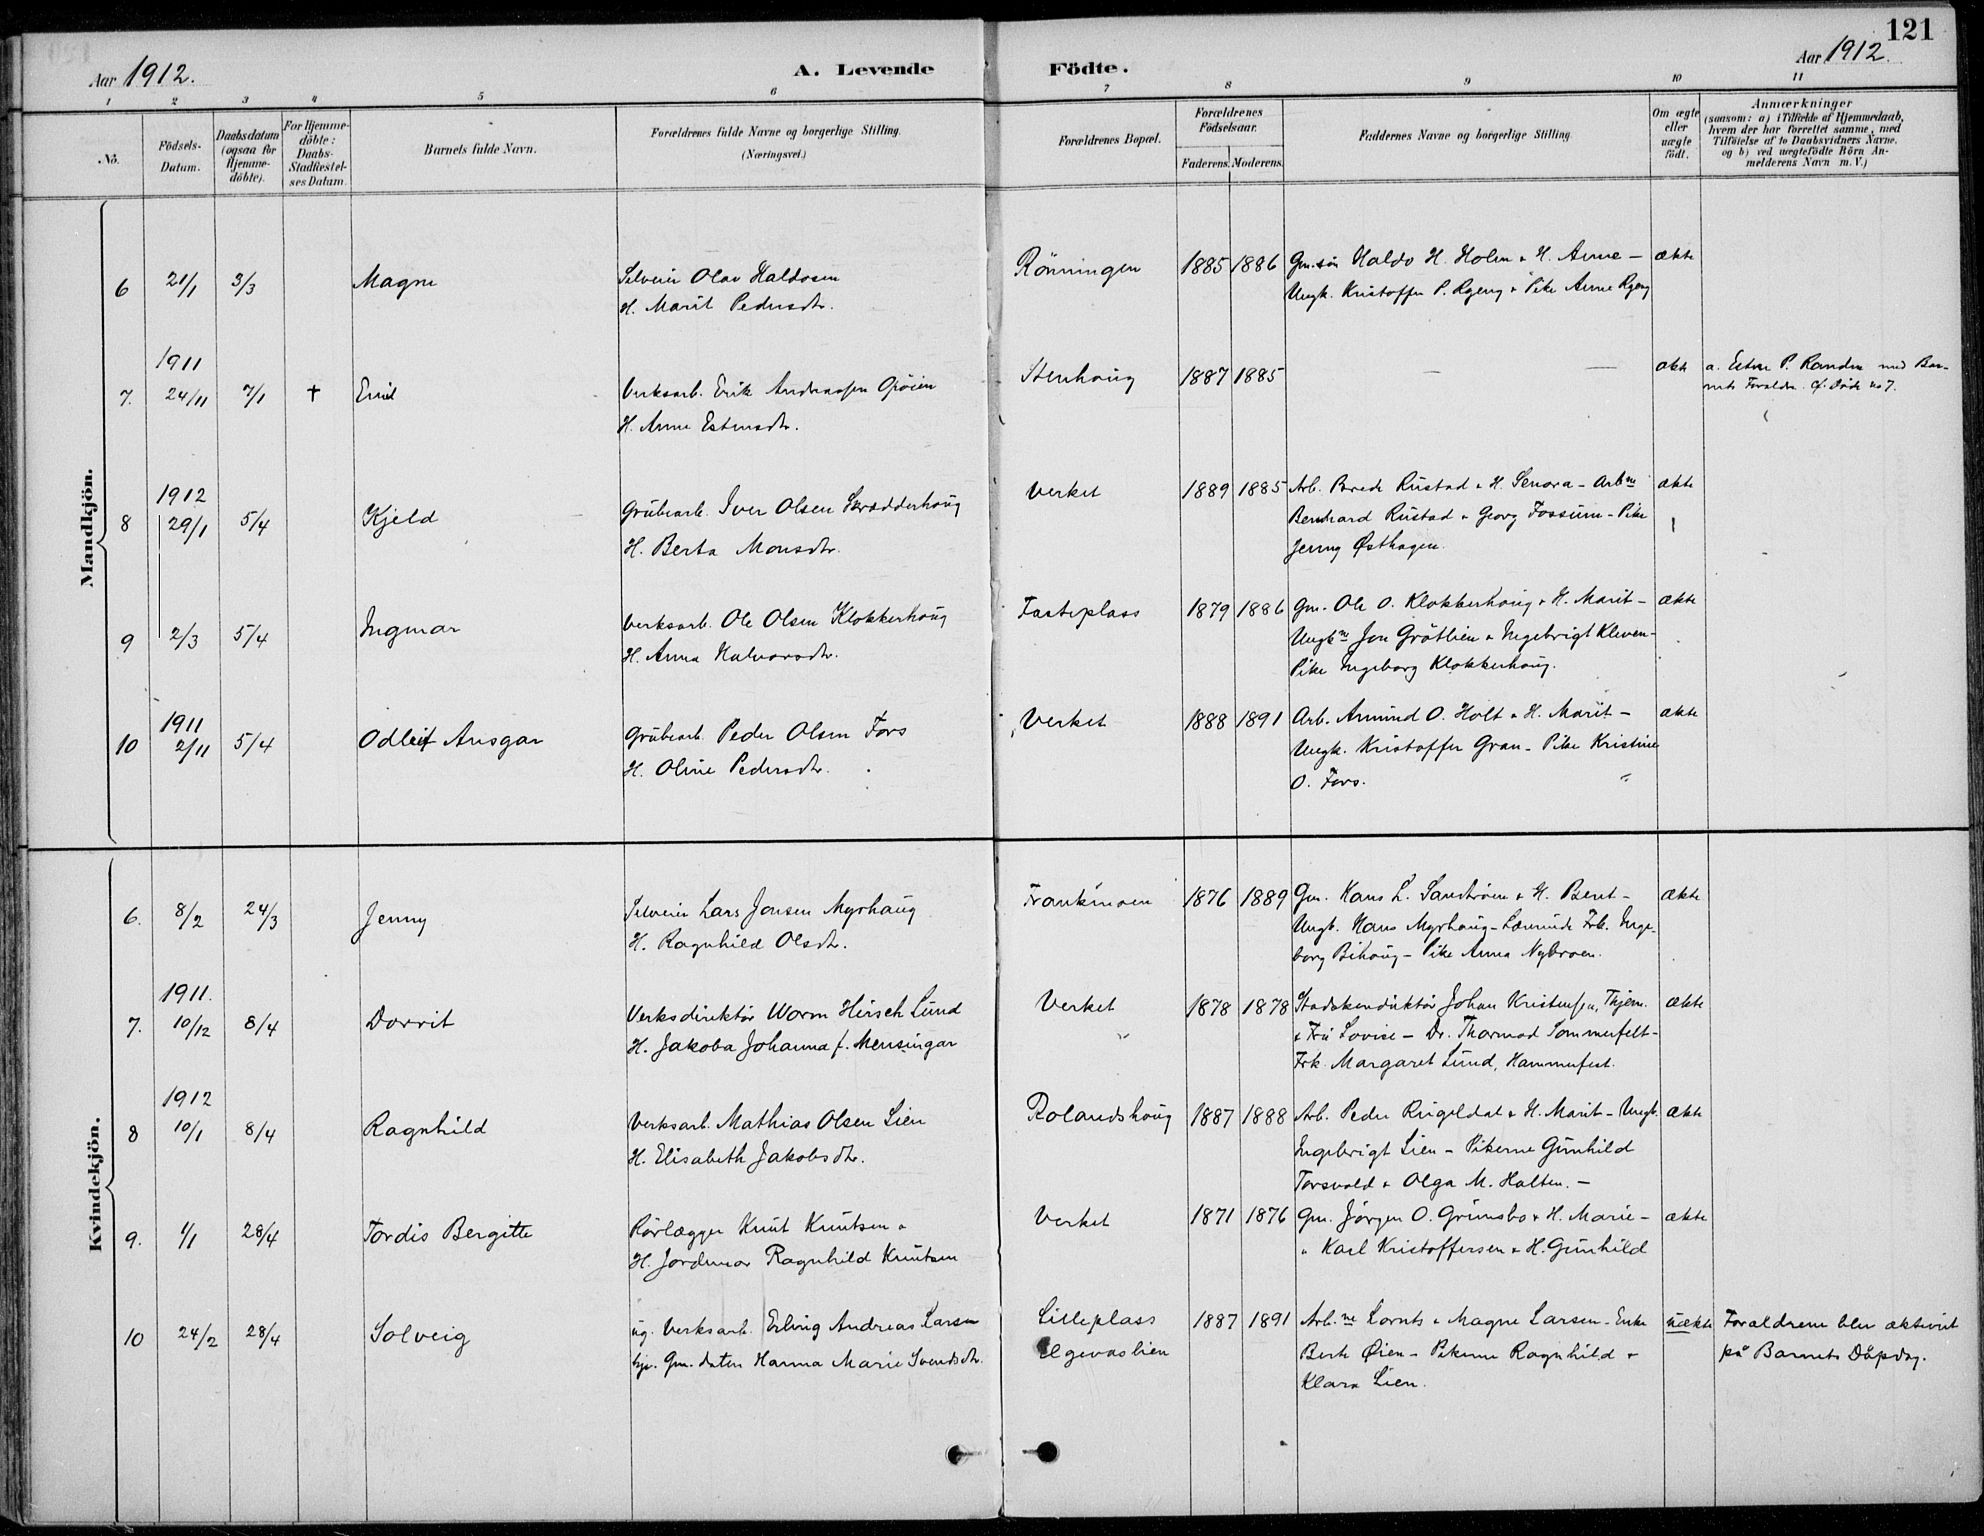 121
Aar 1912.
A. Levende Födte.
Aar 1912.
1 2 3 4 5 6 7 8 9 10 11
No.
Födsels-Datum.
Daabsdatum (ogsaa for Hjemme-döbte).
For Hjemme-döbte: Daabs-Stadfæstel-ses Datum.
Barnets fulde Navn.
Forældrenes fulde Navne og borgerlige Stilling. (Næringsvei.)
Forældrenes Bopæl.
Forældrenes Födselsaar.
Faderens. Moderens.
Faddernes Navne og borgerlige Stilling.
Om ægte eller uægte födt.
Anmærkninger
(saasom: a) i Tilfælde af Hjemmedaab,
hvem der har forrettet samme, med
Tilföielse af to Daabsvidners Navne.
og b) ved uægtefödte Börn An-
melderens Navn m. V.)
Mandkjön.
6 21/1 3/3 Magne Selveier Olav Haldosen Rönningen 1885 1886 Gm.sön Haldo H. Holm & H. Anne – ækte
H. Marit Pedersdtr. Ungk. Kristoffer P. Rgeng & Pike Anne Rgeng
1911
7. 24/11 7/1 † Emil Verksarb. Erik Andreassen Opöien Stenhoug 1887 1885 — — ækte a. Esten P. Randen med Bar-
H. Anne Estensdtr. nets Forældre. cf. Döde no 7.
1912
8 29/1 5/4 Kjeld Grubearb. Iver Olsen Skrædderhoug Verket 1889 1885 Arb. Brede Rustad & H. Senora – Arbne ækte
H. Berta Monsdtr. Bernhard Rustad & Georg Fossum – Pike
Jenny Østhagen.
9 2/3 5/4 Ingmar Verksarb. Ole Olsen Klokkerhoug Fasteplass 1879 1886 Gm. Ole O. Klokkerhoug & H. Marit – ækte
H. Anna Halvorsdtr. Ungkne Jon Grötlien & Ingebrigt Kleven –
Pike Ingeborg Klokkerhoug.
1911
10 2/11 5/4 Odleif Ansgar Grubearb. Peder Olsen Fors Verket 1888 1891 Arb. Amund O. Holt & H. Marit – ækte
H. Oline Pedersdtr. Ungk. Kristoffer Gran – Pike Kristine
O. Fors.
Kvindekjön.
6. 8/2 24/3 Jenny Selveier Lars Jonsen Myrhaug Frankmoen 1876 1889 Gm. Hans L. Sandtröen & H. Beret – ækte
H. Ragnhild Olsdtr. Ungk. Hans Myrhaug – Lærerinde Frk. Inge-
borg Bihoug – Pike Anna Nybroen.
1911.
7. 10/12 8/4 Dorrit Verksdirektör Worm Hirsch Lund Verket 1878 1878 Stadskonduktör Johan Kristensen, Thjem. ækte
H. Jakoba Johanna f. Mensingar & Fru Lovise – Dr. Thormod Sommerfelt –
Frk. Margaret Lund, Hammerfest.
1912
8 10/1 8/4 Ragnhild Verksarb. Mathias Olsen Lien Rolandshoug 1887 1888 Arb. Peder Rugeldal & H. Marit – Ungk. ækte
H. Elisabeth Jakobsdtr. Ingebrigt Lien – Pikerne Gunhild
Torsvold & Olga M. Holten. –
9. 1/1 28/4 Tordis Bergitte Rörlægger Knut Knutsen & Verket 1871 1876 Gm. Jörgen O. Grimsbo & H. Marie – ækte
H. Jordmor Ragnhild Knutsen " Karl Kristoffersen & H. Gunhild
10 24/2 28/4 Solveig ug. Verksarb. Erling Andreas Larsen Lilleplass 1887 1891 Arb.ne Lornts & Magne Larsen – Enke uækte Forældrene blev ektevìet
Gm. datter Hanna Marie Svendsdtr. Elgevaslien Berte Øien – Pikerne Ragnhild & på Barnets Dåpdag.
Klara Lien.